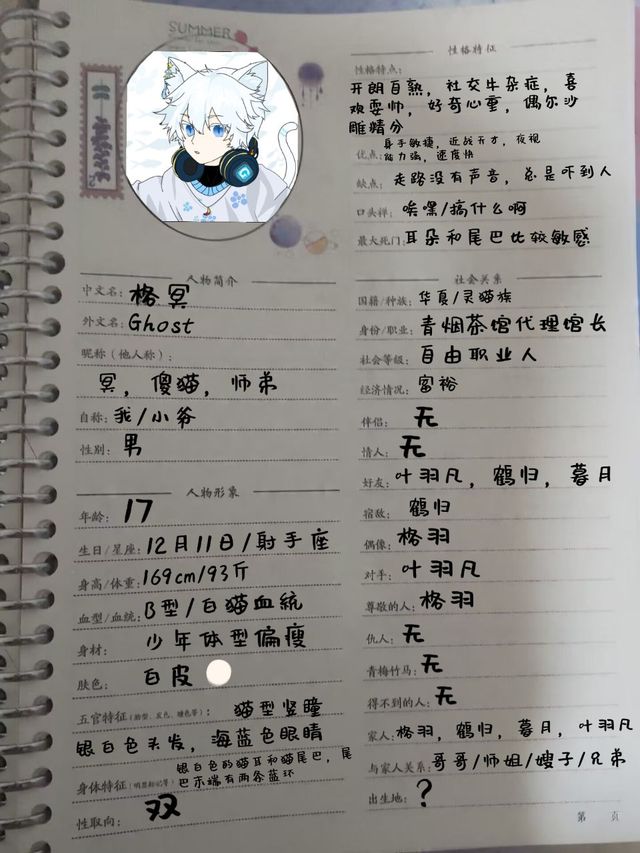 SUMMER
人物简介
中文名：格冥
外文名：Ghost
昵称（他人称）：
冥，傻猫，师弟
自称：我/小爷
性别：男
人物形象
年龄：17
生日/星座：12月11日/射手座
身高/体重：169cm/93斤
血型/血统：B型/白猫血统
身材：少年体型偏瘦
肤色：白皮
五官特征（脸型、发色、瞳色等）：猫型竖瞳
银白色头发，海蓝色眼睛
身体特征（明显标记等）银白色的猫耳和猫尾巴，尾
巴末端有两条蓝环
性取向：双
性格特征
性格特点：
开朗自熟，社交牛杂症，喜
欢耍帅，好奇心重，偶尔沙
雕精分
身手敏捷，近战天才，夜视
优点：能力强，速度快
缺点：走路没有声音，总是吓到人
口头禅：唉嘿/搞什么啊
最大死门：耳朵和尾巴比较敏感
社会关系
国籍/种族：华夏/灵猫族
身份/职业：青烟茶馆代理馆长
社会等级：自由职业人
经济情况：富裕
伴侣：无
情人：无
好友：叶羽凡，鹤归，暮月
宿敌：鹤归
偶像：格羽
对手：叶羽凡
尊敬的人：格羽
仇人：无
青梅竹马：无
得不到的人：无
家人：格羽，鹤归，暮月，叶羽凡
与家人关系：哥哥/师姐/嫂子/兄弟
出生地：？
第 页